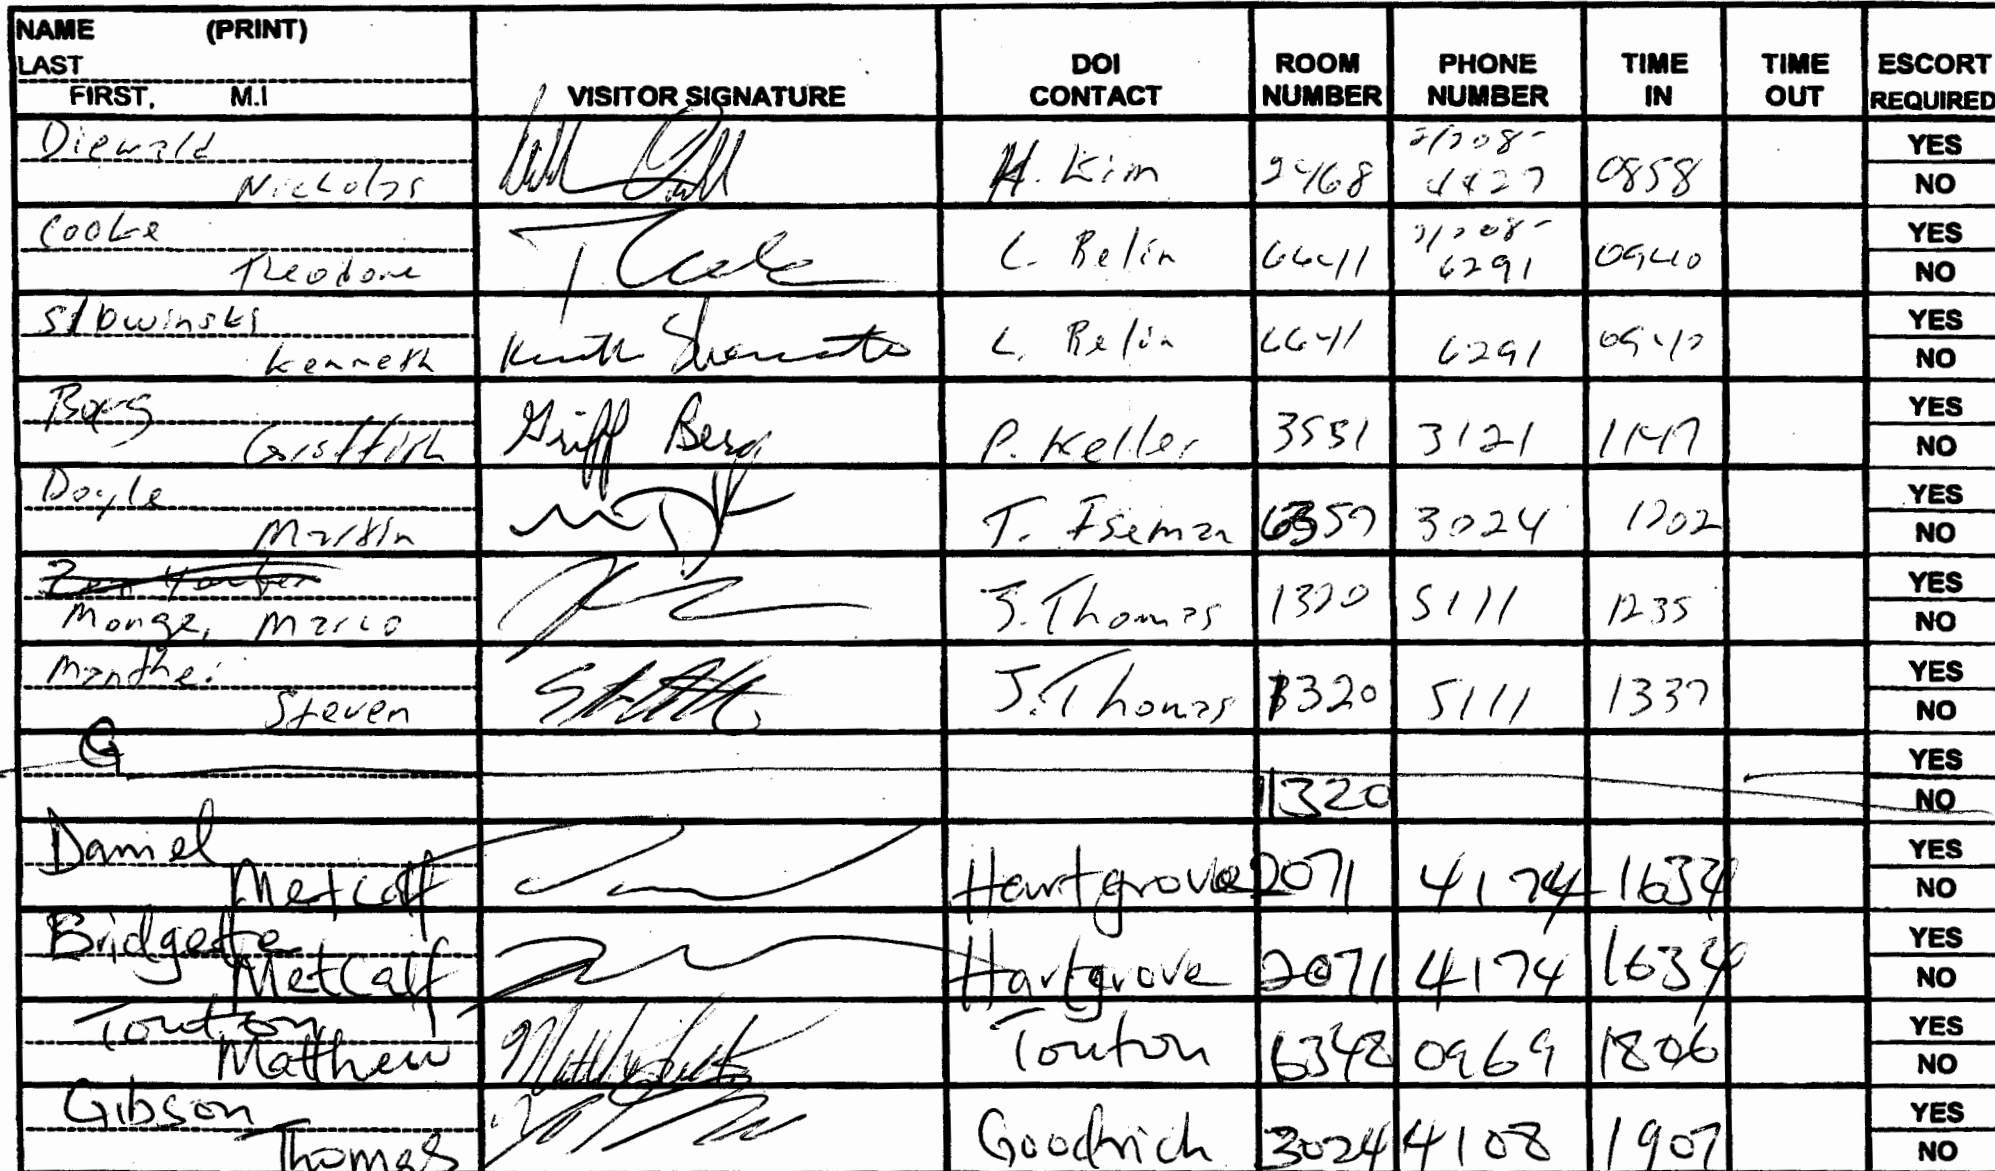 NAME (PRINT)
LAST
FIRST, M.I
VISITOR SIGNATURE
DOI CONTACT
ROOM NUMBER
PHONE NUMBER
TIME IN
TIME OUT
ESCORT REQUIRED
Diewald
Nicholas
H. Kim
2468
4427
0858
YES
NO
Cooke
Theodore
T Cooke
L. Relin
6641
6291
0940
YES
NO
Slowinski
Kenneth
L. Relin
6641
6291
0940
YES
NO
Berg
Griffith
Griff Berg
P. Keller
3551
3121
1147
YES
NO
Doyle
Martin
T. Iseman
6357
3024
1202
YES
NO
Monge, Marco
J. Thomas
1320
5111
1235
YES
NO
Manthei
Steven
J. Thomas
1320
5111
1337
YES
NO
G
1320
YES
NO
Daniel
Metcalf
Hartgrove
2071
4174
1634
YES
NO
Bridgette
Metcalf
Hartgrove
2071
4174
1634
YES
NO
Touton
Matthew
Touton
6342
0969
1806
YES
NO
Gibson
Thomas
Goodrich
3024
4108
1907
YES
NO